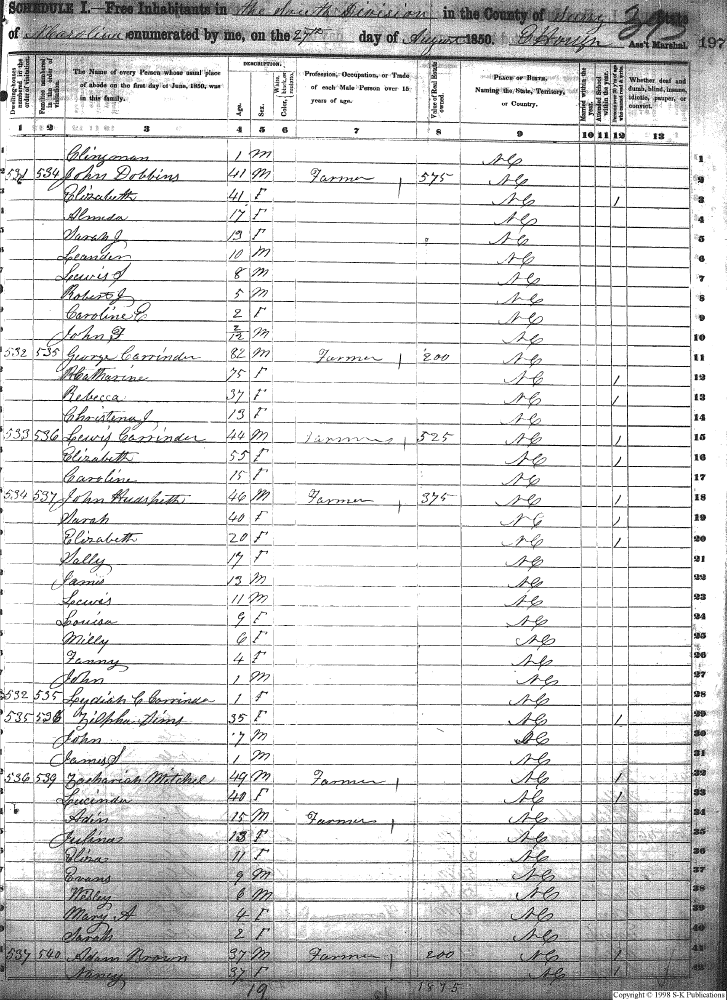 SCHEDULE I.—Free Inhabitants in the South Division in the County of Surry State 393
of N Carolina enumerated by me, on the 27th day of August 1850. Ass't Marshal. 197
Dwelling-houses numbered in the order of visitation.
Families numbered in the order of visitation.
The Name of every Person whose usual place of abode on the first day of June, 1850, was in this family.
DESCRIPTION.
Age.
Sex.
Color, White, black, or mulatto.
Profession, Occupation, or Trade of each Male Person over 15 years of age.
Value of Real Estate owned.
PLACE OF BIRTH, Naming the State, Territory, or Country.
Married within the year.
Attended School within the year.
Whether deaf and dumb, blind, insane, idiotic, pauper, or convict.
1 2 3 4 5 6 7 8 9 10 11 12 13
1 Clingman 1 M NC 1
2 531 534 John Dobbins 41 M Farmer 1 575 NC 2
Elizabeth 41 F NC 1 3
Almeda 17 F NC 4
Sarah J 13 F NC 5
Leander 10 M NC 6
Lewis S 8 M NC 7
Robert J 5 M NC 8
Caroline E 2 F NC 9
John F 2/12 M NC 10
532 535 George Carrinder 82 M Farmer 1 200 NC 11
Catharine 75 F NC 1 12
Rebecca 37 F NC 1 13
Christena J 13 F NC 14
533 536 Lewis Carrinder 44 M Farmer 1 525 NC 1 15
Elizabeth 55 F NC 1 16
Caroline 15 F NC 17
534 537 John Hudspeth 46 M Farmer 1 375 NC 1 18
Sarah 40 F NC 1 19
Elizabeth 20 F NC 1 20
Sally 17 F NC 21
James 13 M NC 22
Lewis 11 M NC 23
Louisa 9 F NC 24
Milly 6 F NC 25
Fanny 4 F NC 26
John 1 M NC 27
532 535 Lydiah C Carrinder 1 F NC 28
535 536 Zilpha Sims 35 F NC 1 29
John 7 M NC 30
James S 1 M NC 31
536 539 Zachariah Mitchel 49 M Farmer 1 NC 1 32
Lucinda 40 F NC 1 33
Adin 15 M Farmer 1 NC 34
Julina 13 F NC 35
Eliza 11 F NC 36
Evans 9 M NC 37
Wesley 6 M NC 38
Mary A 4 F NC 39
Sarah 2 F NC 40
537 540 Adam Brown 37 M Farmer 1 200 NC 1 41
Nancy 37 F NC 1 42
19 1 1875
Copyright © 1998 S-K Publications